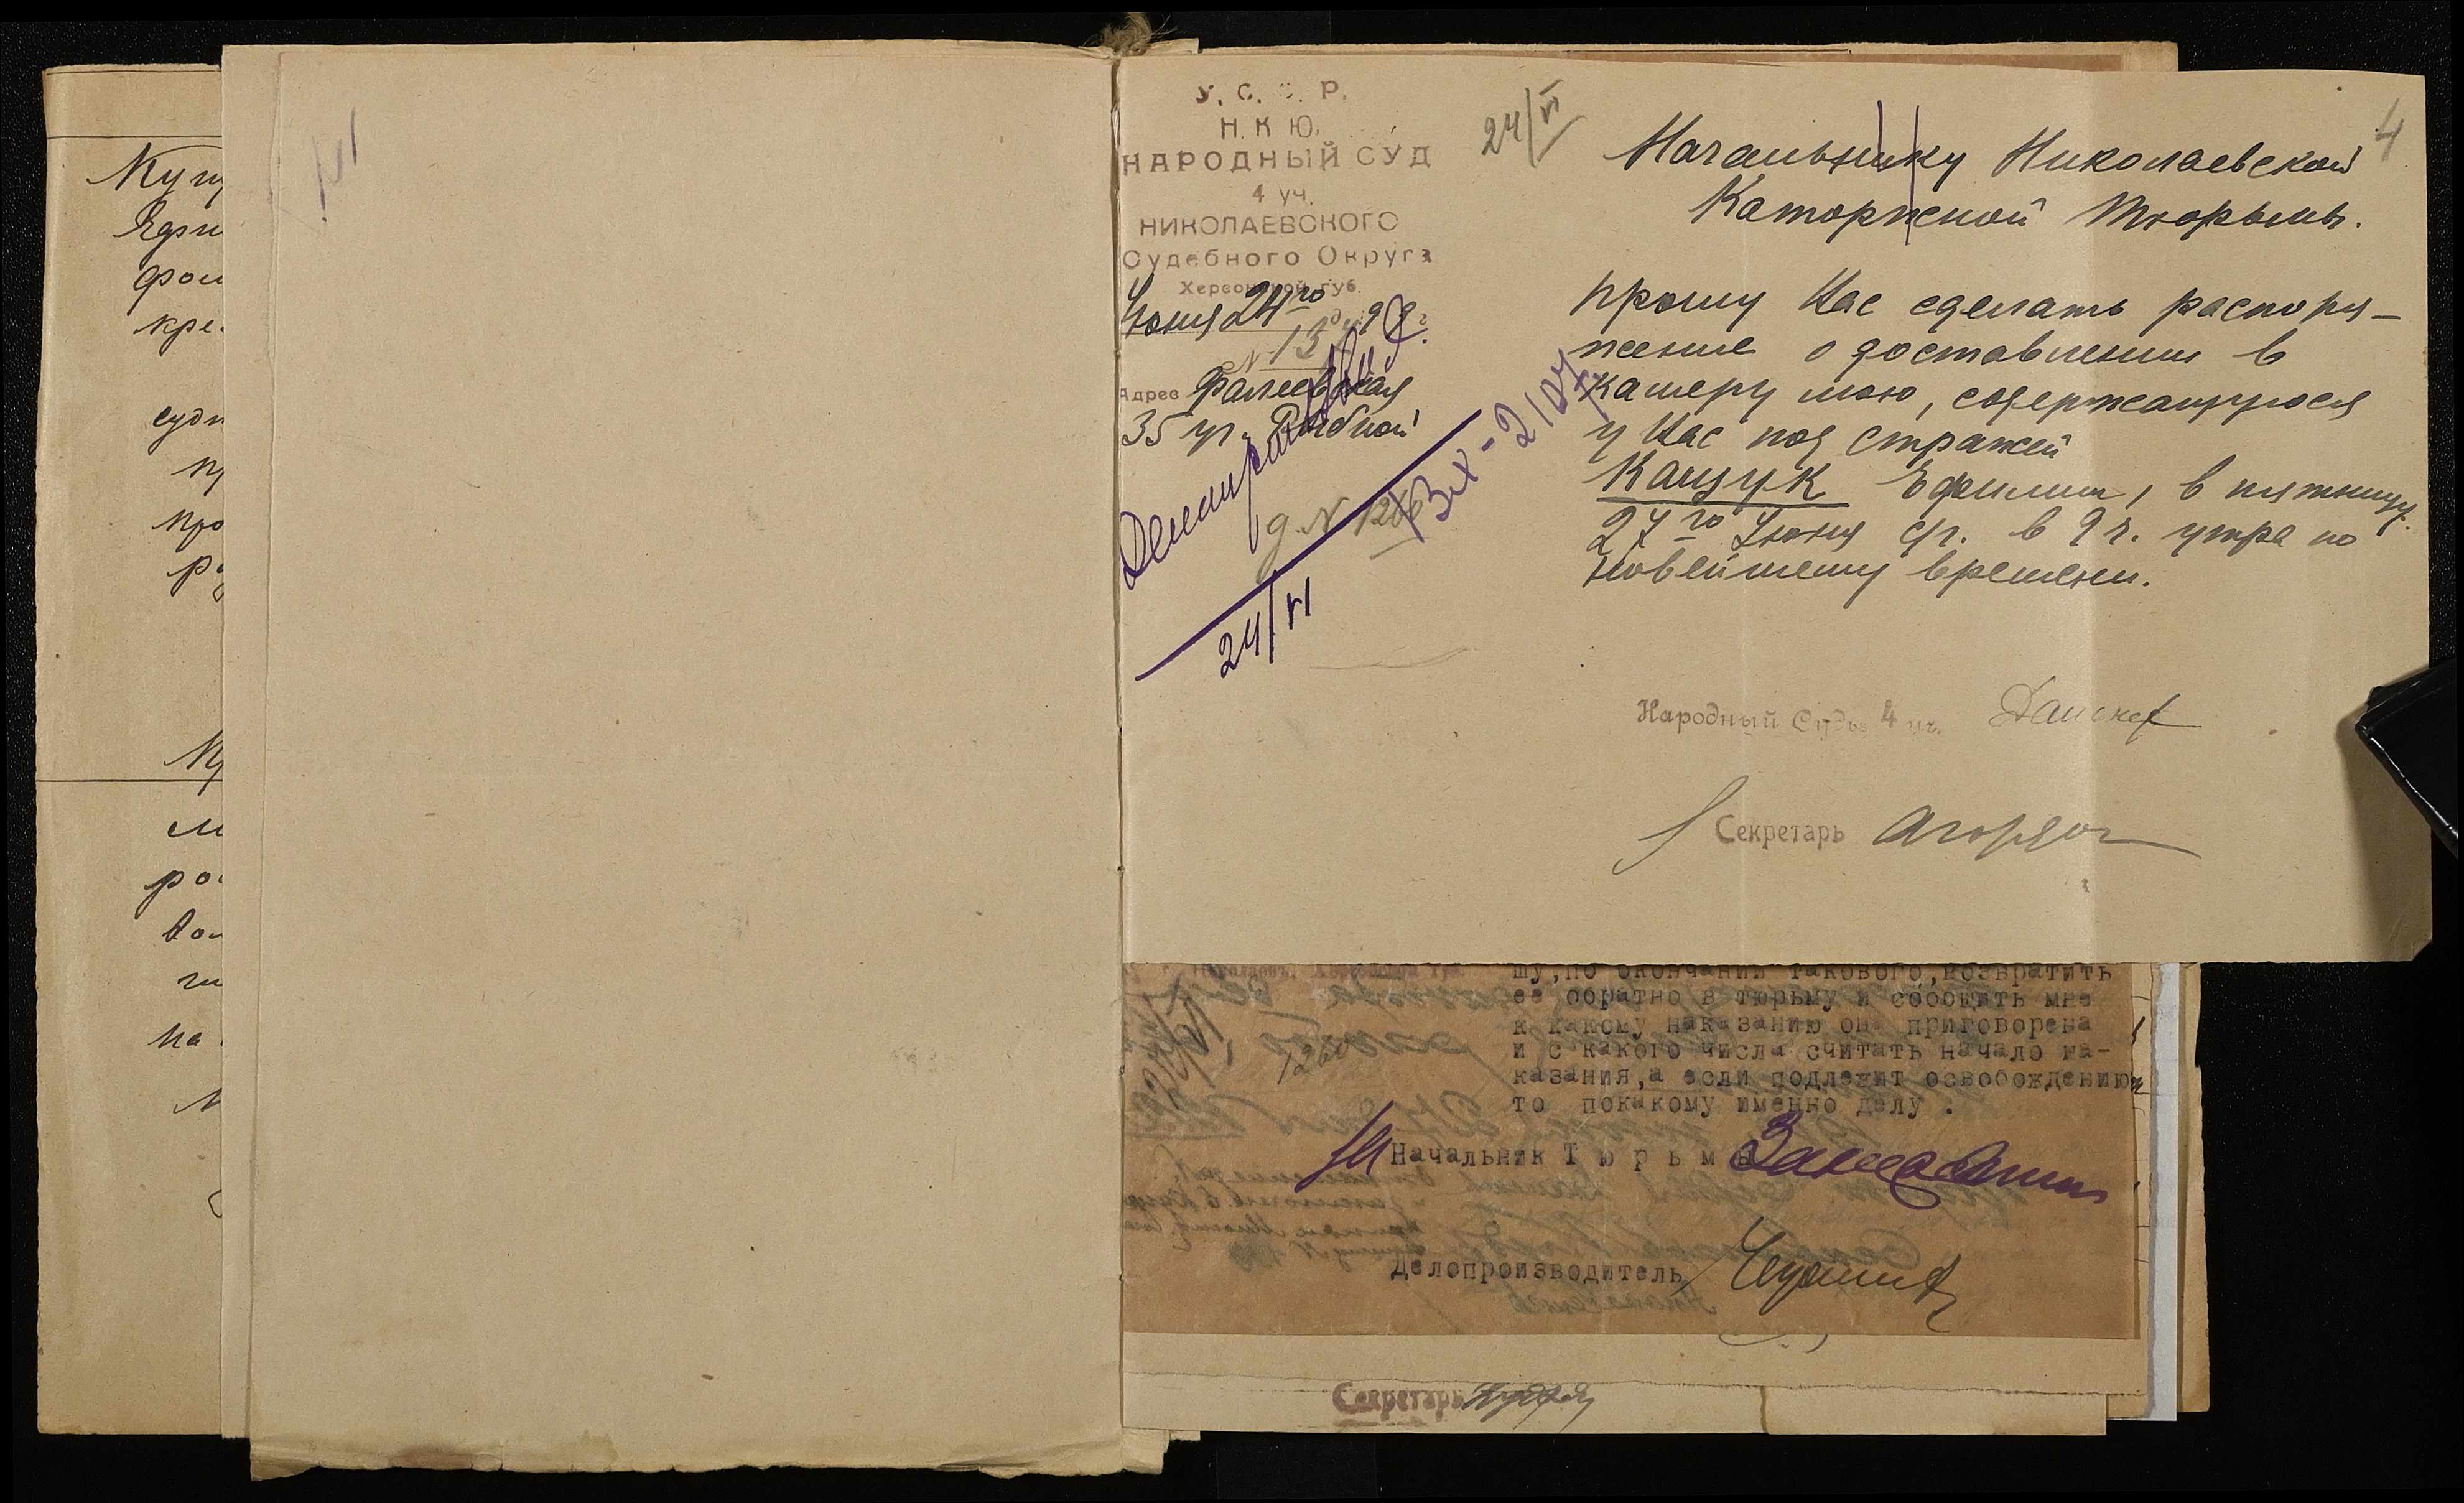 Купр
Ефи
фом
кре
судн
пр
про
У. С. С. Р.
Н. К Ю.
НАРОДНЫЙ СУД
4 уч.
НИКОЛАЕВСКОГО
Судебного Округа
Херсонской губ.
Июня 24го
№ 13
Адрес Фалеевская
35 уг. Рыбной
24/VI
д. № 1206
Вх - 2107
24/VI
4
Начальнику Николаевской
Каторжной Тюрьмы.
Прошу Вас сделать распоря-
жение о доставлении в
камеру мою, содержащуюся
у Вас под стражей
Кащук Ефимии, в пятницу
27го Июня с/г. в 9 ч. утра по
новейшему времени.
Народный Судья 4 уч.
Секретарь
Николаевъ, Херсонской губ.
шу, по окончании такового, возвратить
ее обратно в тюрьму и сообщить мне
к какому наказанию она приговорена
и с какого числа считать начало на-
казания, а если подлежит освобождению
то покакому именно делу .
1260
За Начальник Т ю р ь м ы
Делопроизводитель
Секретарь